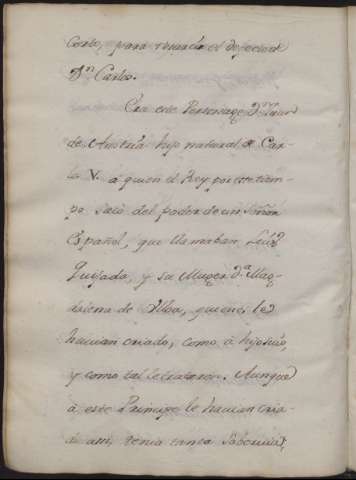 Corte, para remedio el defecto de
Dn Carlos.
Era este Personage Dn Juan
de Austria hijo natural de Car-
lo V. a quien el Rey por este tiem-
po saco del poder de un Señor
Español, que llamaban Luis
Quijada, y su Muger Da Mag-
dalena de Ulloa, quienes le
havian criado, como á hijo suio,
y como tal le trataron. Aunque
á este Principe le havian cria-
do assi, tenia tanta